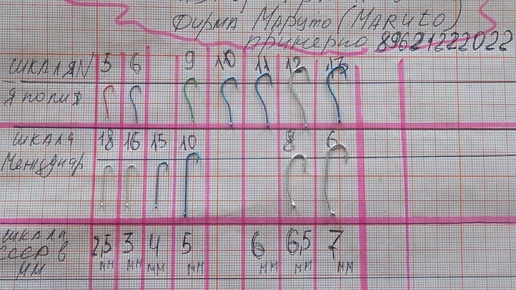 Фирма Маруто (MARUTO)
примерно 89621222022
ШКАЛА N 5 6 9 10 11 12 13
Япония
шкала 18 16 15 10 8 6
Междунар
шкала
СССР в 2,5 3 4 5 6 6,5 7
мм мм мм мм мм мм мм мм